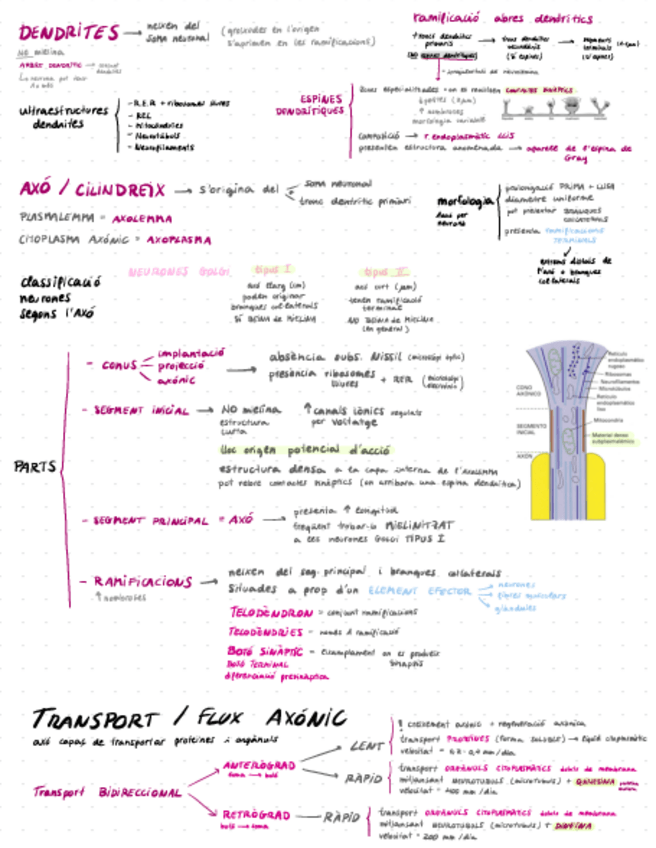 DENDRITES → neixen del soma neuronal (gruixudes en l'origen s'aprimen en les ramificacions)
NO mielina
ARBRE DENDRÍTIC → conjunt dendrites
La neurona pot tenir
ultraestructures dendrites
- R.E.R + ribosomes lliures
- REL
- Mitocòndries
- Neurotúbuls
- Neurofilaments
ramificació abres dendrítics
troncs dendrítics primaris
(NO espines dendrítiques)
(SÍ espines)
segments terminals
(SÍ espines)
ESPINES DENDRÍTIQUES
zones especialitzades on es realitzen CONTACTES SINÀPTICS
↑ nombroses
morfologia variable
COMPOSICIÓ → r. endoplasmàtic LLIS
presenten estructura anomenada → aparell de l'espina de Gray
AXÓ / CILINDREIX → s'origina del
soma neuronal
tronc dendrític primari
PLASMALEMMA = AXOLEMMA
CITOPLASMA AXÓNIC = AXOPLASMA
morfologia
Axó per neurona
prolongació PRIMA + LLISA
diàmetre uniforme
pot presentar BRANQUES COL·LATERALS
presenta RAMIFICACIONS TERMINALS
extrems distals de l'axó o branques col·laterals
classificació neurones segons l'Axó
NEURONES GOLGI
tipus I
axó llarg (cm)
poden originar branques col·laterals
SÍ BEINA DE MIELINA
tipus II
axó curt (µm)
tenen ramificació terminal
NO BEINA DE MIELINA
(en general)
PARTS
- CONUS
implantació
projecció
axónic
→ absència subs. Nissil (microscopi òptic)
presència ribosomes lliures + RER (microscopi electrònic)
- SEGMENT INICIAL → NO mielina
estructura curta
↑ canals iònics regulats per voltatge
lloc origen potencial d'acció
estructura densa a la capa interna de l'AXOLEMMA
pot rebre contactes sinàptics (on arribarà una espina dendrítica)
CONO AXÓNICO
SEGMENTO INICIAL
AXÓN
Retículo endoplasmático rugoso
Ribosomas
Neurofilamentos
Microtúbulos
Retículo endoplasmático liso
Mitocondria
Material denso subplasmalémico
- SEGMENT PRINCIPAL = AXÓ → presenta ↑ longitud
freqüent trobar-lo MIELINITZAT a les neurones GOLGI TIPUS I
- RAMIFICACIONS → neixen del seg. principal i branques col·laterals
↑ nombroses
Situades a prop d'un ELEMENT EFECTOR
neurones
fibres musculars
glàndules
TELODÈNDRON = conjunt ramificacions
TELODÈNDRIES = només 1 ramificació
BOTÓ SINÀPTIC = eixamplament on es produeix sinapsis
BOTÓ TERMINAL
diferenciació presinàptica
TRANSPORT / FLUX AXÓNIC
axó capaç de transportar proteïnes i orgànuls
Transport BIDIRECCIONAL
ANTERÒGRAD
soma → botó
LENT
creixement axònic + regeneració axónica
transport PROTEÏNES (forma SOLUBLE) → líquid citoplasmàtic
RÀPID
transport ORGÀNULS CITOPLASMÀTICS dotats de membrana
mitjansant NEUROTÚBULS (microtúbuls) + QUINESINA
velocitat = 400 mm/dia
RETRÒGRAD
botó → soma
RÀPID
transport ORGÀNULS CITOPLASMÀTICS dotats de membrana
mitjansant NEUROTÚBULS (microtúbuls) + DINEÏNA
velocitat = 200 mm/dia